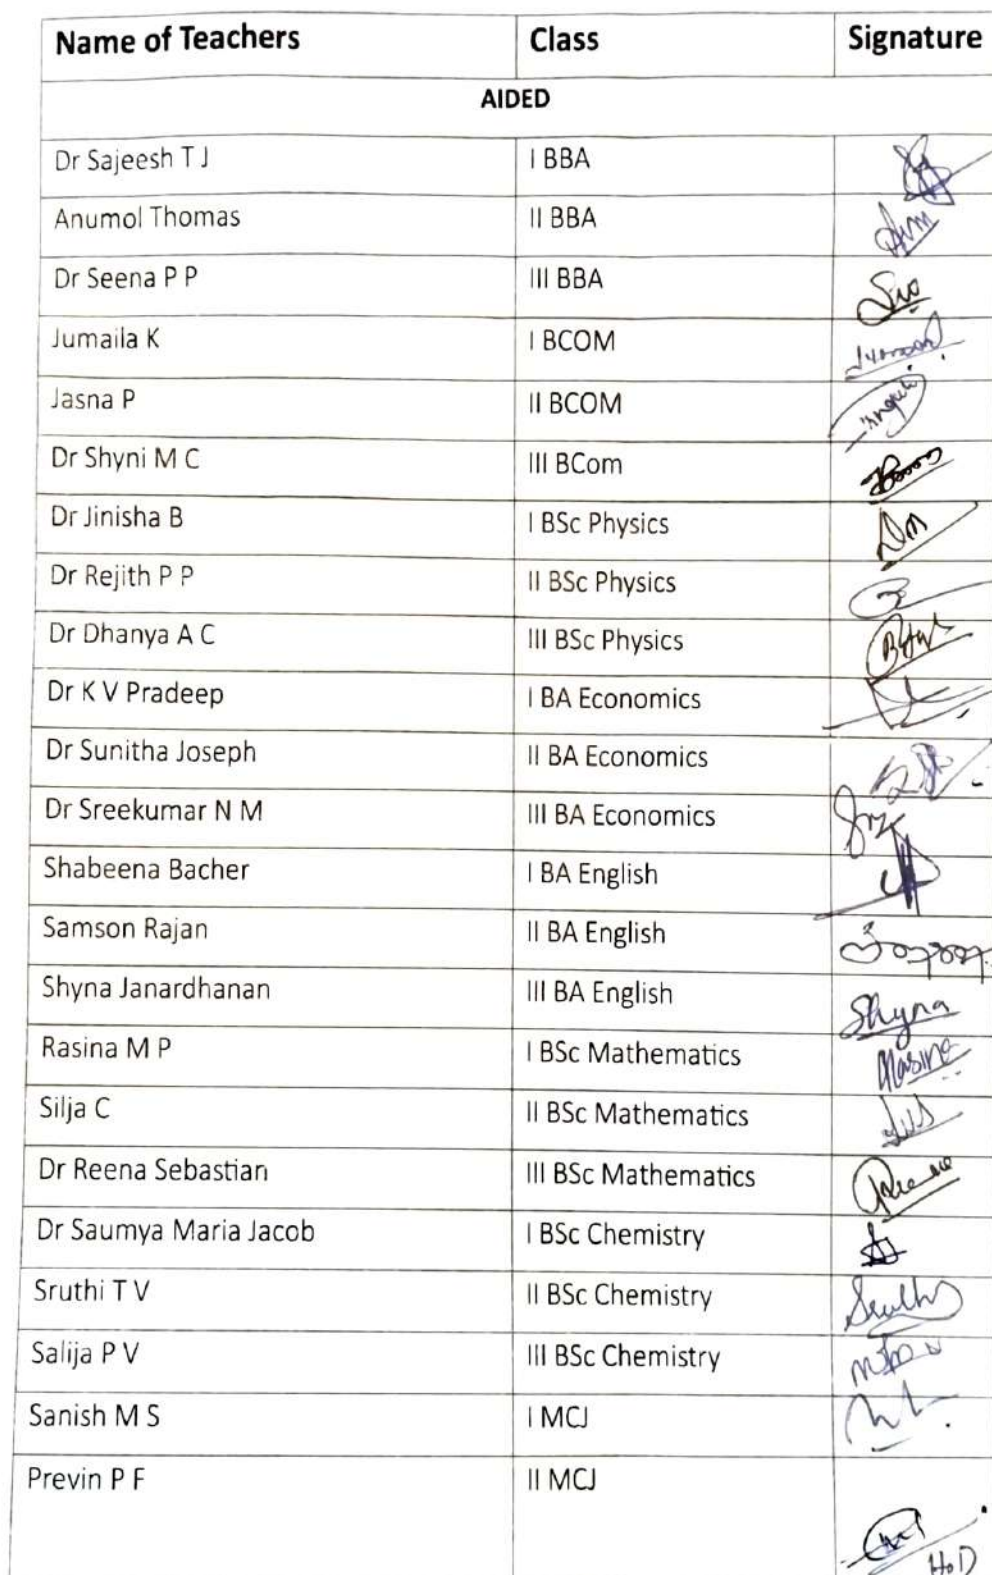 Name of Teachers Class Signature
AIDED
Dr Sajeesh T J I BBA
Anumol Thomas II BBA
Dr Seena P P III BBA
Jumaila K I BCOM
Jasna P II BCOM
Dr Shyni M C III BCom
Dr Jinisha B I BSc Physics
Dr Rejith P P II BSc Physics
Dr Dhanya A C III BSc Physics
Dr K V Pradeep I BA Economics
Dr Sunitha Joseph II BA Economics
Dr Sreekumar N M III BA Economics
Shabeena Bacher I BA English
Samson Rajan II BA English
Shyna Janardhanan III BA English Shyna
Rasina M P I BSc Mathematics Rasina
Silja C II BSc Mathematics
Dr Reena Sebastian III BSc Mathematics
Dr Saumya Maria Jacob I BSc Chemistry
Sruthi T V II BSc Chemistry
Salija P V III BSc Chemistry
Sanish M S I MCJ
Previn P F II MCJ
HoD